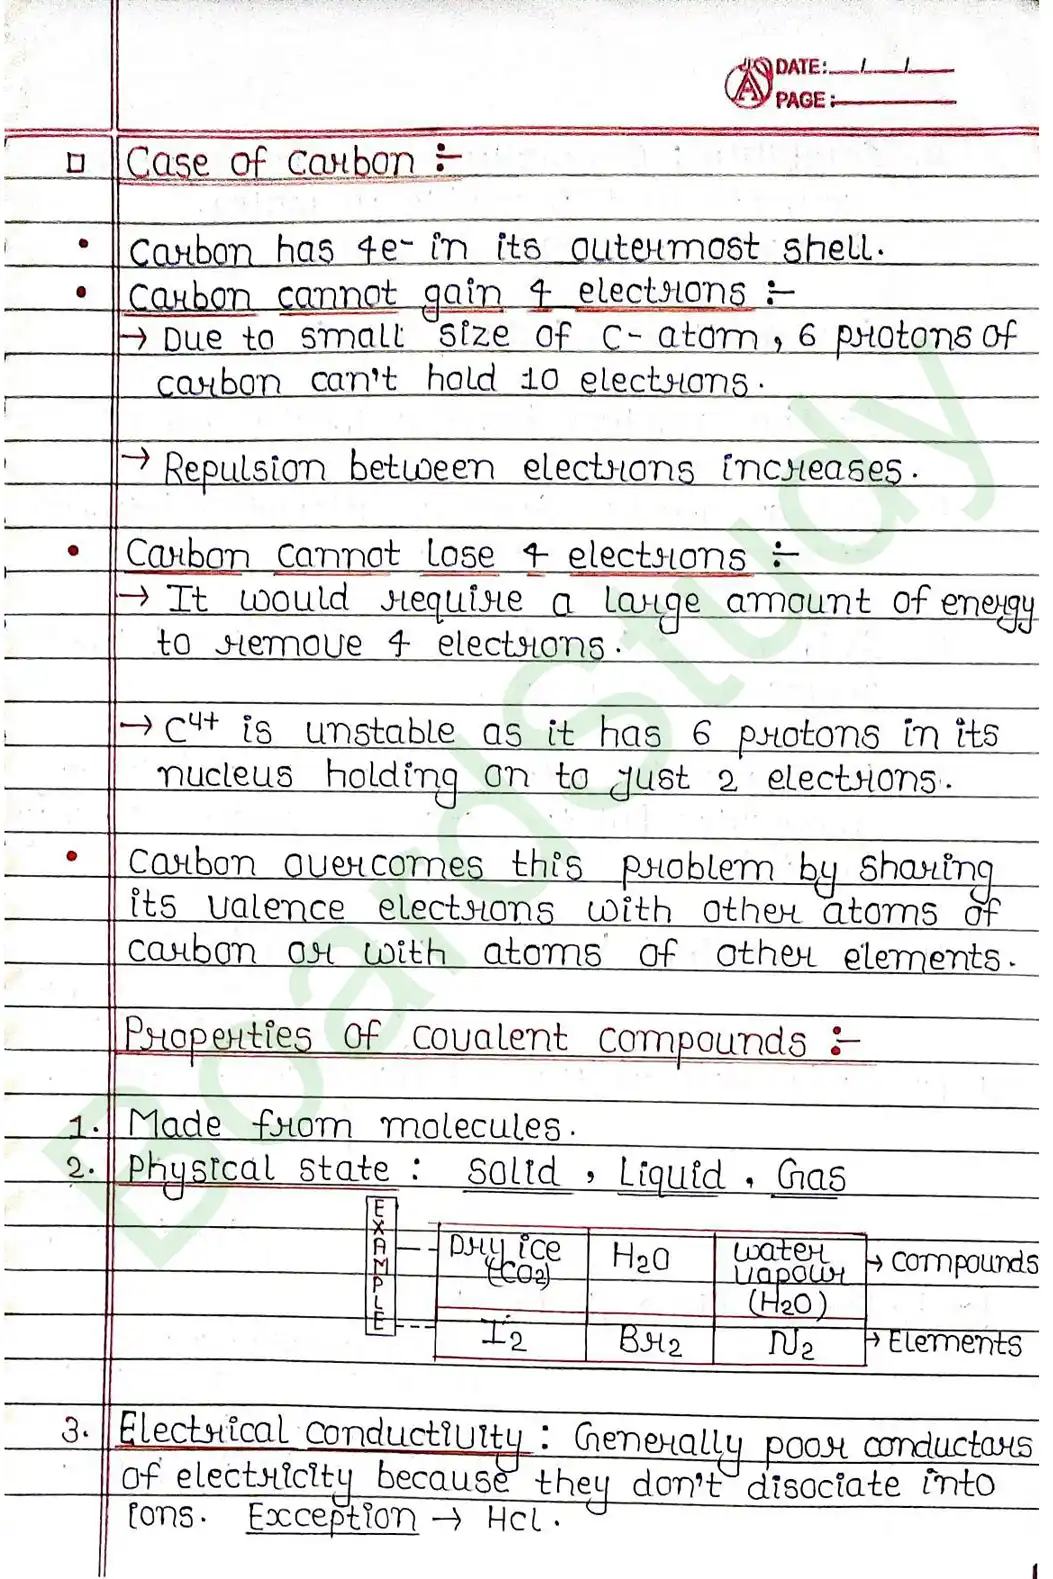 DATE: / /
PAGE:
Case of carbon :-
• Carbon has 4e- in its outermost shell.
• Carbon cannot gain 4 electrons :-
→ Due to small size of C-atom, 6 protons of
carbon can't hold 10 electrons.
→ Repulsion between electrons increases.
• Carbon cannot lose 4 electrons :-
→ It would require a large amount of energy
to remove 4 electrons.
→ C⁴⁺ is unstable as it has 6 protons in its
nucleus holding on to just 2 electrons.
• Carbon overcomes this problem by sharing
its valence electrons with other atoms of
carbon or with atoms of other elements.
Properties of covalent compounds :-
1. Made from molecules.
2. Physical state : Solid, Liquid, Gas
EXAMPLE
Dry ice (CO2) H2O water vapour (H2O) → compounds
I2 Br2 N2 → Elements
3. Electrical conductivity : Generally poor conductors
of electricity because they don't disociate into
ions. Excception → HCl.
BoardStudy
1